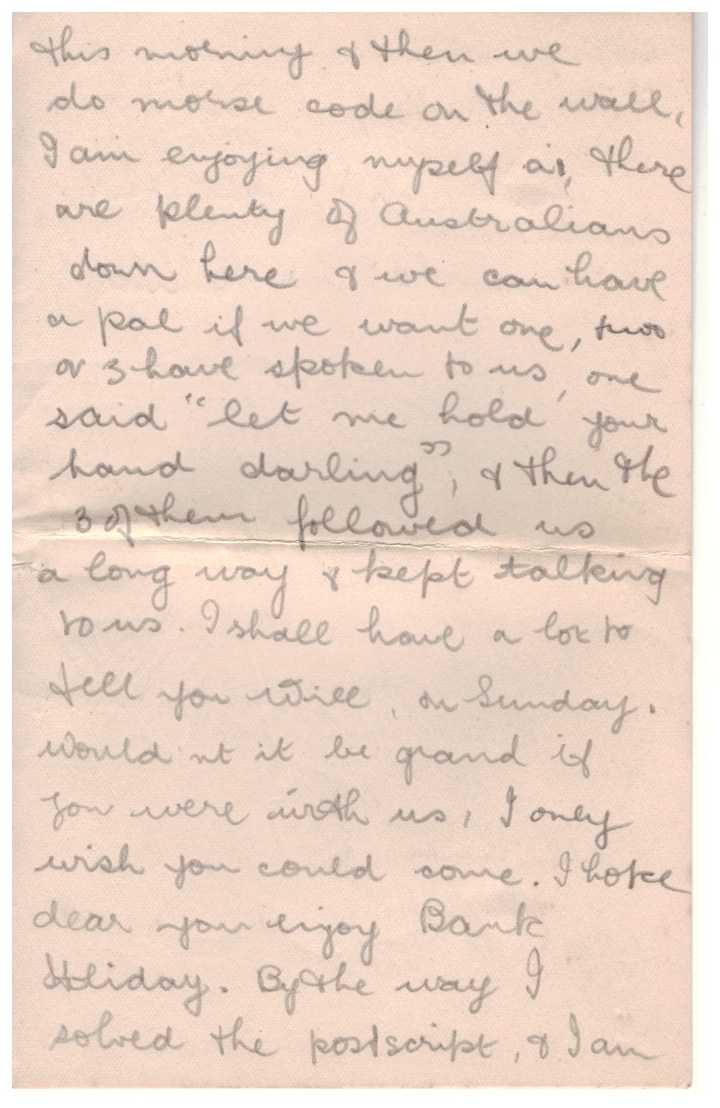 this morning & then we
do morse code on the wall,
I am enjoying myself as, there
are plenty of Australians
down here & we can have
a pal if we want one, two
or 3 have spoken to us, one
said "let me hold your
hand darling", & then the
3 of them followed us
a long way & kept talking
to us. I shall have a lot to
tell you Will, on Sunday.
would nt it be grand if
you were with us, I only
wish you could come. I hope
dear you enjoy Bank
Holiday. By the way I
solved the postscript, & I am